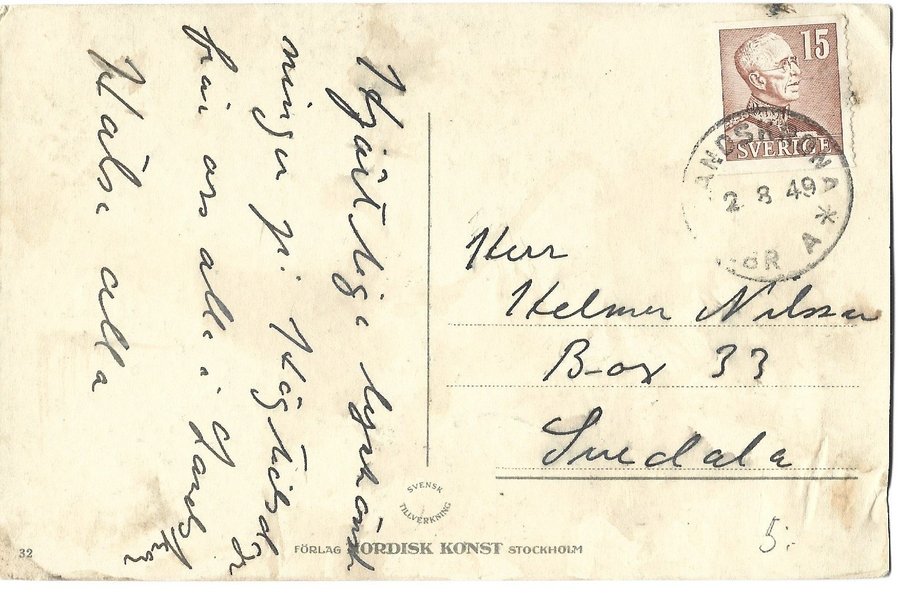 Hjärtliga lyckönsk
ningar på Högtidsdagen
från oss alla i Landskrona
Hälsa alla
15
SVERIGE
LANDSKRONA
2 8 49
A
Herr
Helmer Nilsson
Box 33
Svedala
SVENSK
TILLVERKNING
32
FÖRLAG NORDISK KONST STOCKHOLM
5: